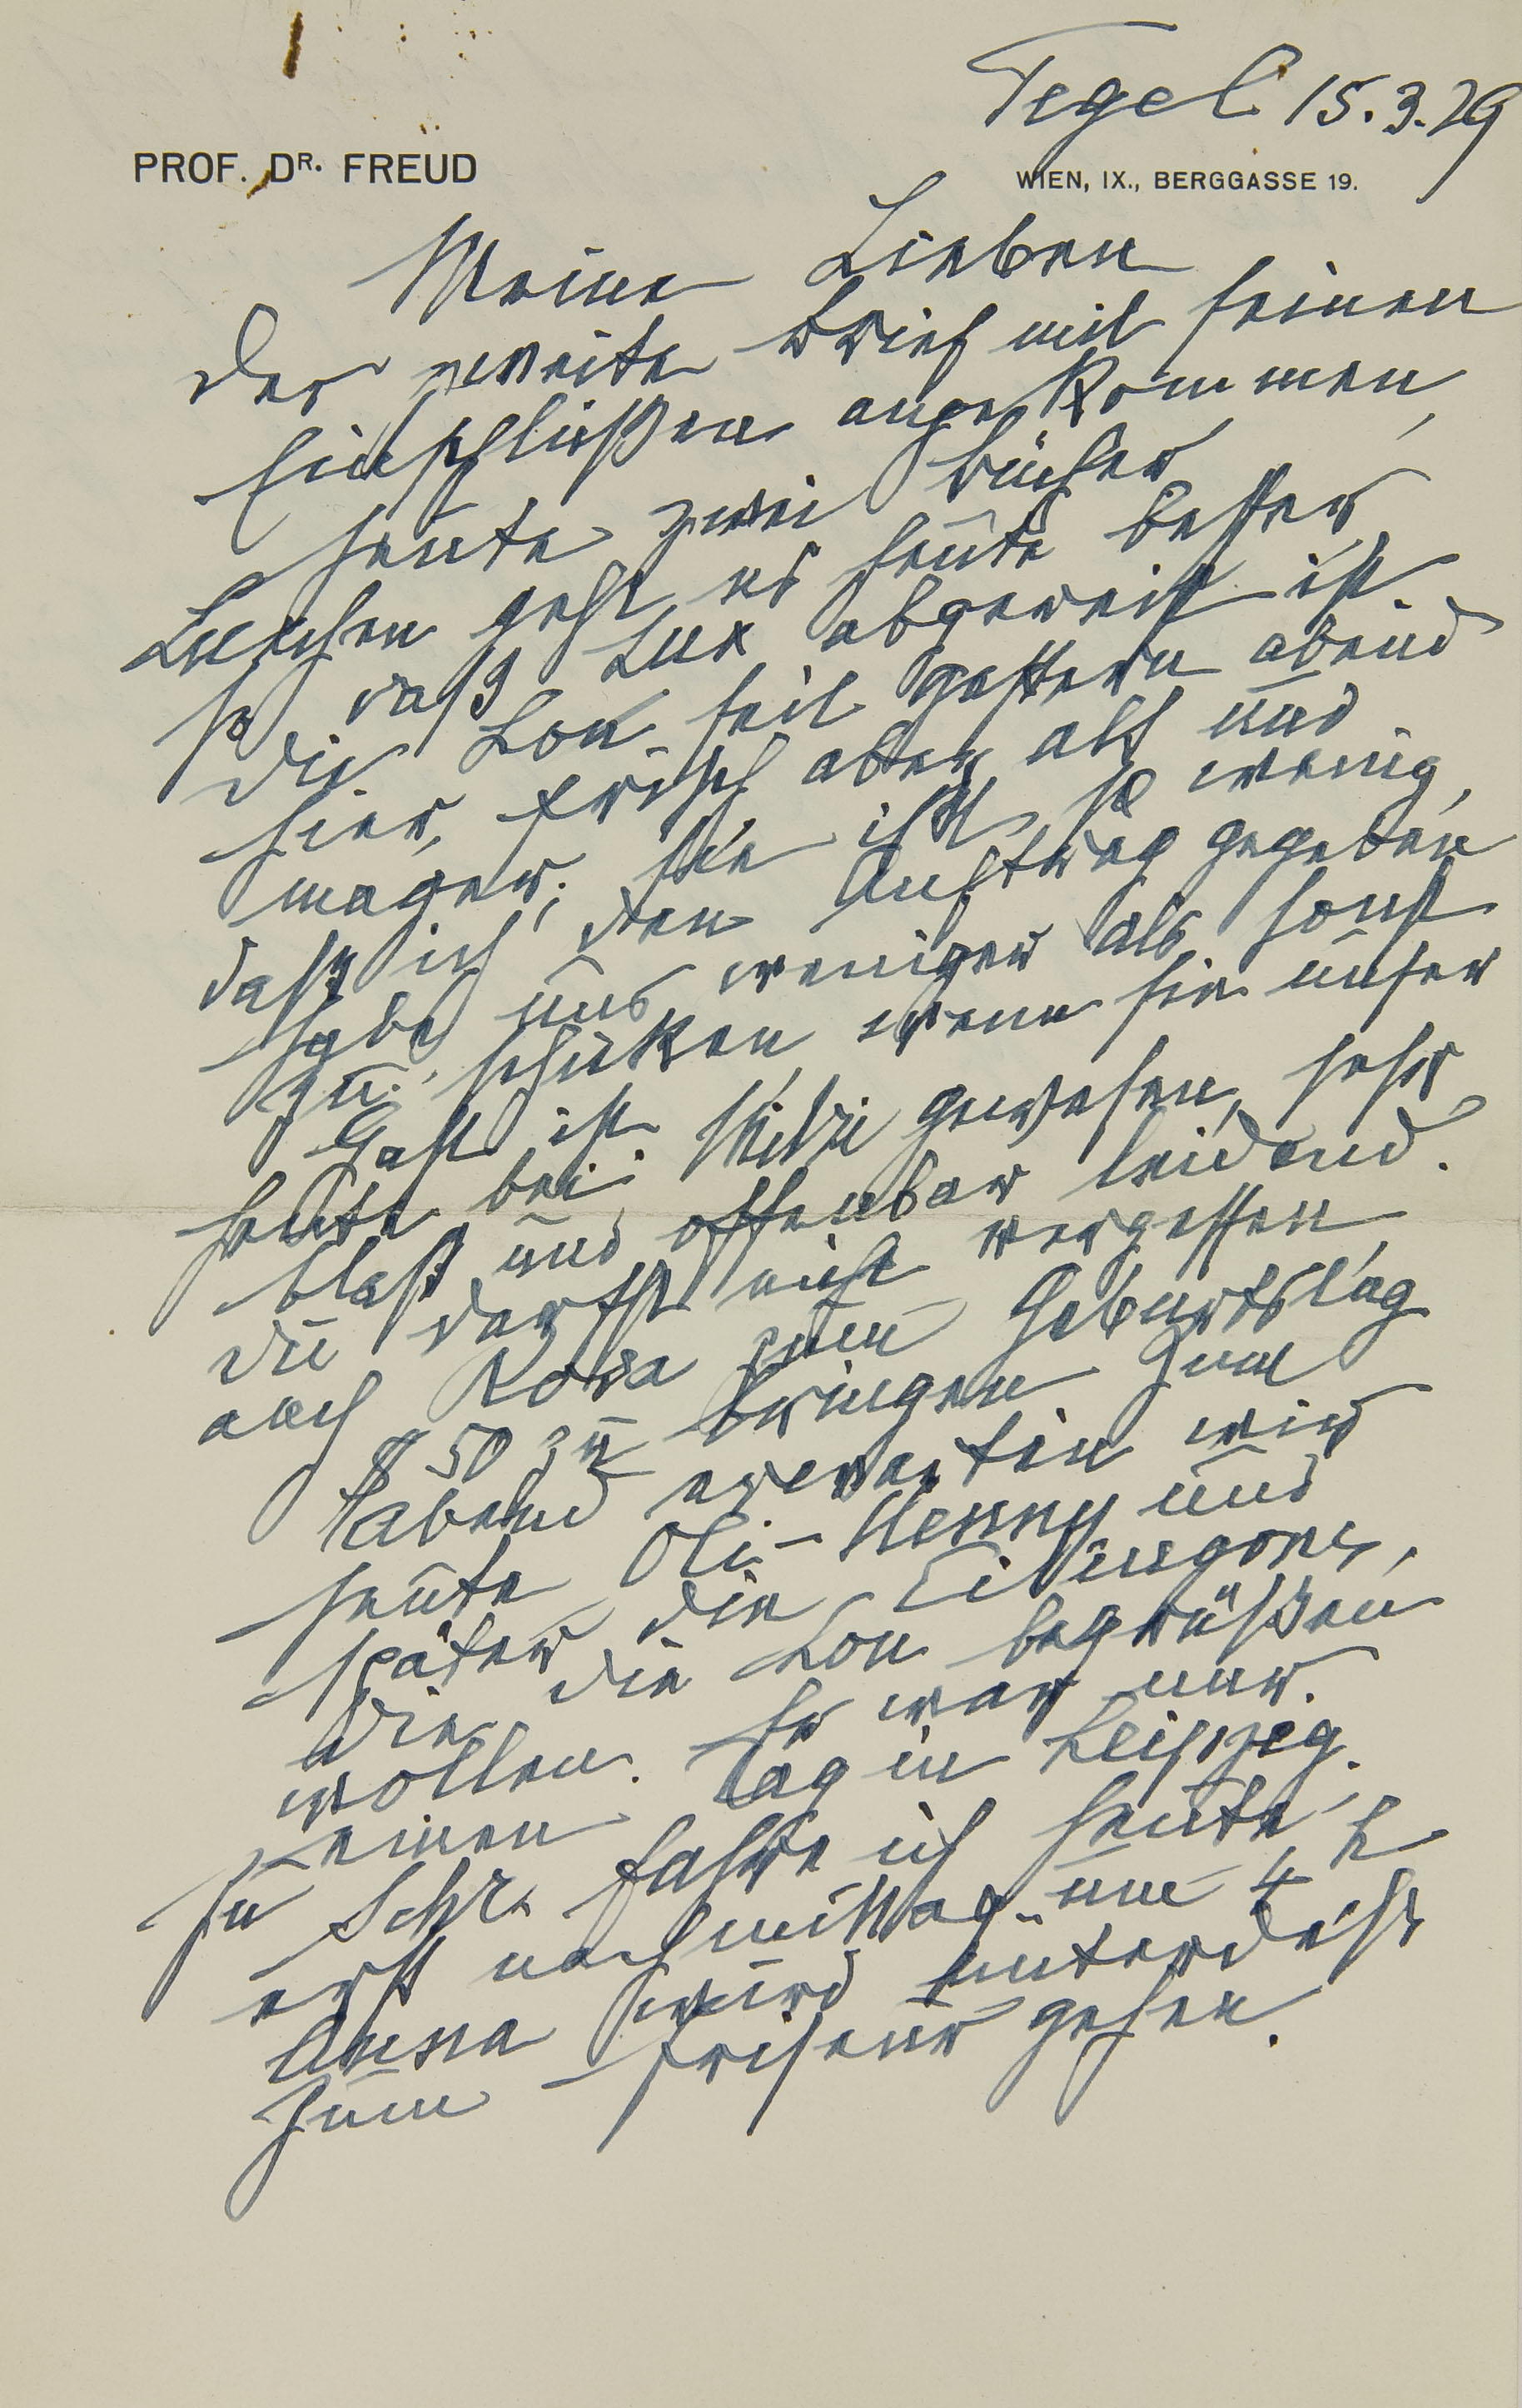 Tegel 15.3.29
PROF. DR. FREUD
WIEN, IX., BERGGASSE 19.
Meine Lieben
Der zweite Brief mit seinen
Einschlüßen angekommen,
heute zwei Bücher
Luxchen geht es heute besser,
so daß Lux abgereist ist.
Die Lou seit gestern abend
hier, frisch aber alt und
mager; sie ißt so wenig,
daß ich den Auftrag gegeben
habe uns weniger als sonst
zu schicken, wenn sie unser
Gast ist.
Heute bei Mitzi gewesen, sehr
blaß und offenbar leidend.
Du darfst nicht vergessen
auch Rosa zum Geburtstag
$ 50 zu bringen. Zum
Abend erwarten wir
heute Oli-Henny und
später die Eitingons,
die die Lou begrüßen
wollen. Er war nur
einen Tag in Leipzig.
Zu Schr. fahre ich heute
erst nachmittag um 4 h
Anna wird unterdeß
zum Friseur gehen.